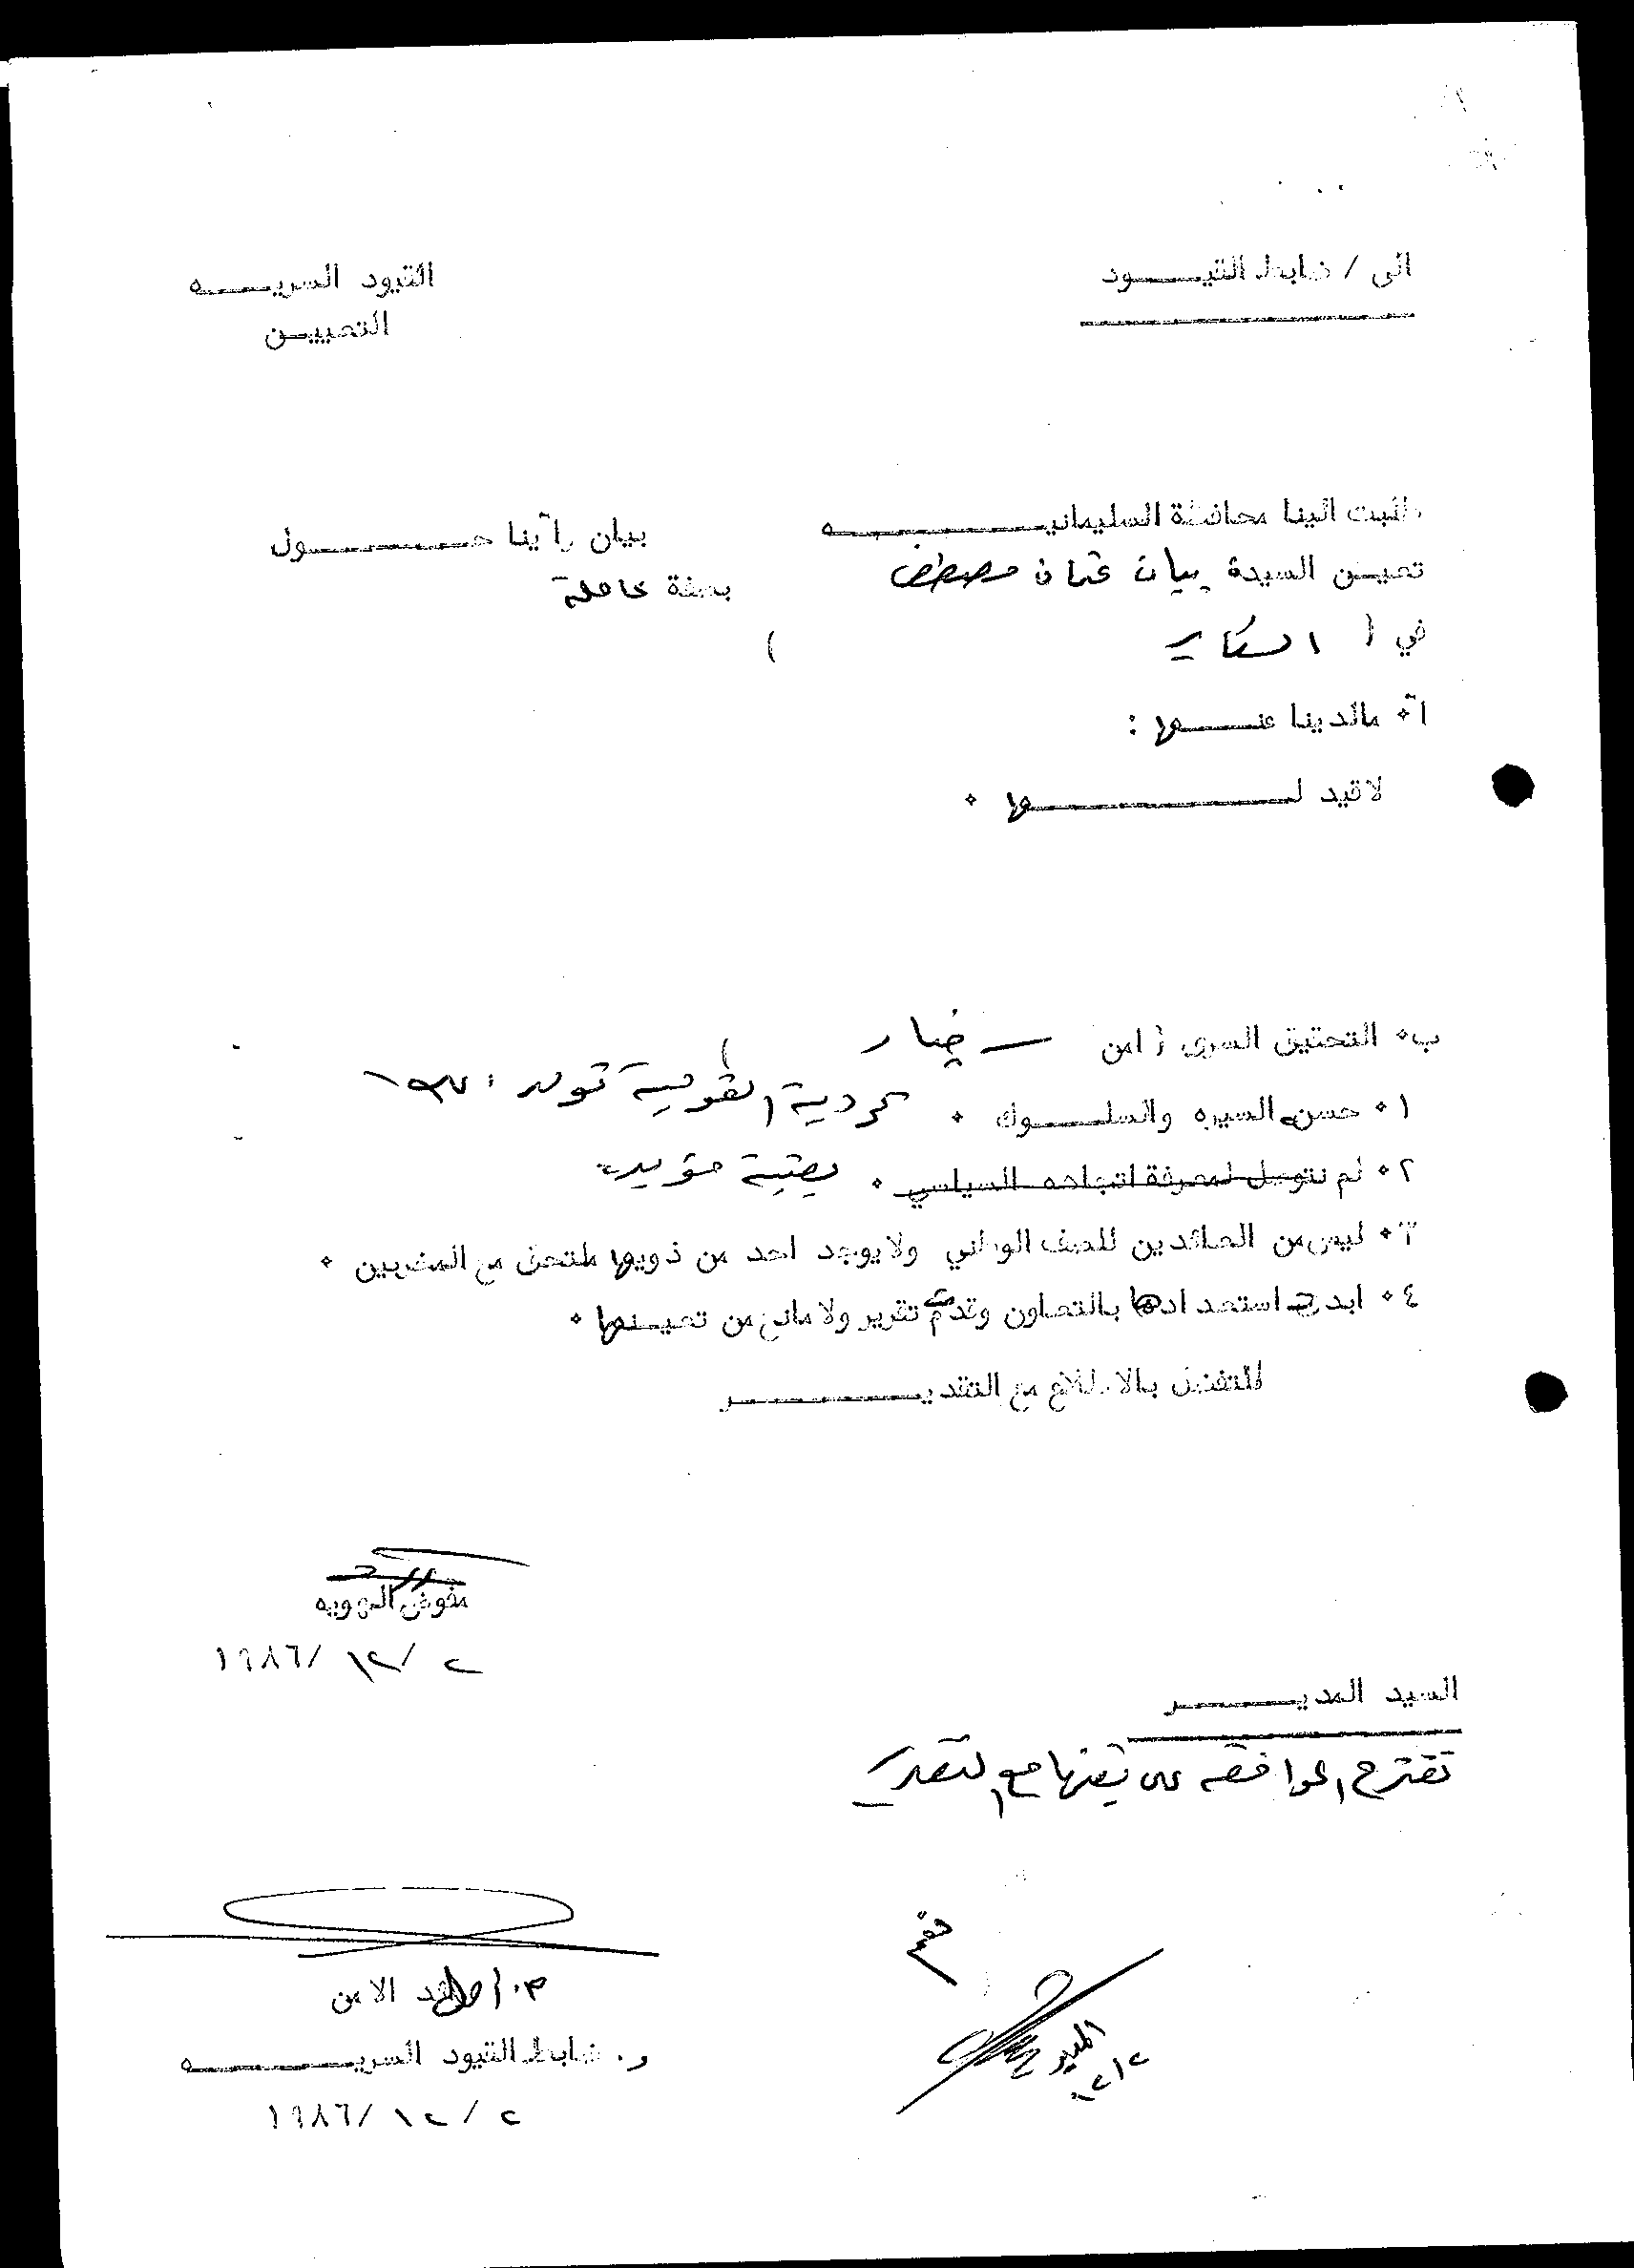 الى / ضابط القيـــود
القيود السريـــه
التعييـن
طلبت الينا محافظة السليمانيـــه بيان رأينا حـــول
تعيين السيدة بيان عثمان مصطفى بصفة عاملة
في ( السكاير )
آ٠ مالدينا عنــها :
لاقيد لـــها ٠
ب٠ التحقيق السري ( امن )
١٠ حسنة السيره والسلـــوك ٠ كردية القومية تولد :
٢٠ لم نتوصل لمعرفة اتجاهه السياسي ٠ بعثية مؤيدة
٣٠ ليس من العائدين للصف الوطني ولا يوجد احد من ذويها ملتحق مع المخربين ٠
٤٠ ابدت استعدادها بالتعاون وقدمت تقرير ولا مانع من تعيـنها ٠
للتفضل بالاطلاع مع التقديـــر
مفوض الهويه
٢ / ١٢ /١٩٨٦
السيد المديـــر
نقترح الموافقه على تعينها مع التقدير
نعم
المدير
١٢/٢
الامن
ر٠ ضابط القيود السريـــه
٢ / ١٢ /١٩٨٦